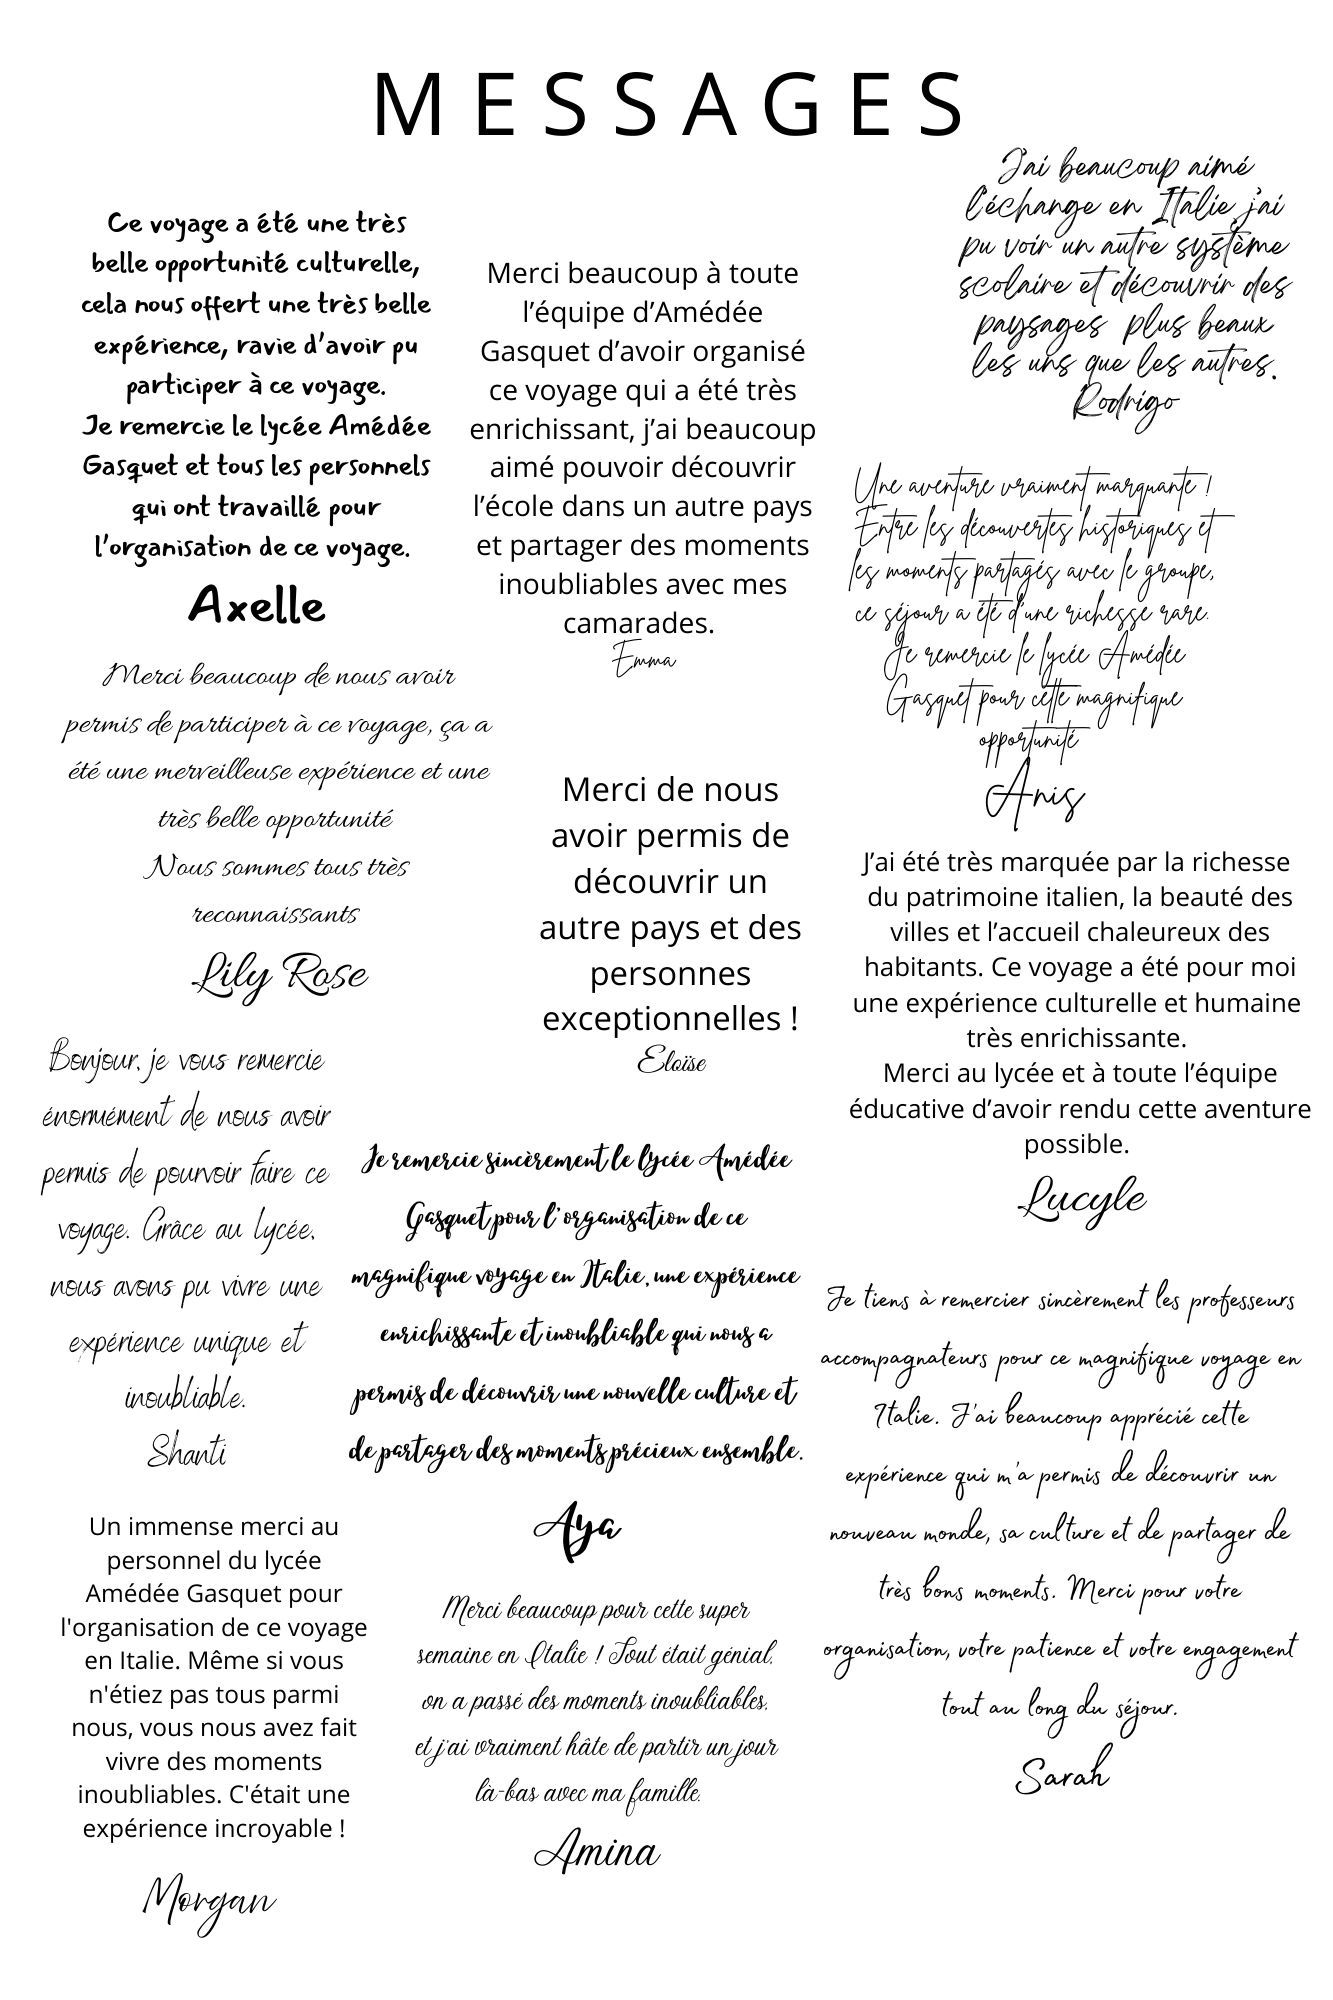 MESSAGES
Ce voyage a été une très
belle opportunité culturelle,
cela nous offert une très belle
expérience, ravie d'avoir pu
participer à ce voyage.
Je remercie le lycée Amédée
Gasquet et tous les personnels
qui ont travaillé pour
l'organisation de ce voyage.
Axelle
Merci beaucoup à toute
l’équipe d’Amédée
Gasquet d’avoir organisé
ce voyage qui a été très
enrichissant, j’ai beaucoup
aimé pouvoir découvrir
l’école dans un autre pays
et partager des moments
inoubliables avec mes
camarades.
Emma
J'ai beaucoup aimé
l'échange en Italie, j'ai
pu voir un autre système
scolaire et découvrir des
paysages plus beaux
les uns que les autres.
Rodrigo
Une aventure vraiment marquante !
Entre les découvertes historiques et
les moments partagés avec le groupe,
ce séjour a été d'une richesse rare.
Je remercie le lycée Amédée
Gasquet pour cette magnifique
opportunité
Anis
Merci beaucoup de nous avoir
permis de participer à ce voyage, ça a
été une merveilleuse expérience et une
très belle opportunité
Nous sommes tous très
reconnaissants
Lily Rose
Merci de nous
avoir permis de
découvrir un
autre pays et des
personnes
exceptionnelles !
Eloïse
J’ai été très marquée par la richesse
du patrimoine italien, la beauté des
villes et l’accueil chaleureux des
habitants. Ce voyage a été pour moi
une expérience culturelle et humaine
très enrichissante.
Merci au lycée et à toute l’équipe
éducative d’avoir rendu cette aventure
possible.
Lucyle
Bonjour, je vous remercie
énormément de nous avoir
permis de pourvoir faire ce
voyage. Grâce au lycée,
nous avons pu vivre une
expérience unique et
inoubliable.
Shanti
Je remercie sincèrement le lycée Amédée
Gasquet pour l'organisation de ce
magnifique voyage en Italie, une expérience
enrichissante et inoubliable qui nous a
permis de découvrir une nouvelle culture et
de partager des moments précieux ensemble.
Aya
Je tiens à remercier sincèrement les professeurs
accompagnateurs pour ce magnifique voyage en
Italie. J'ai beaucoup apprécié cette
expérience qui m'a permis de découvrir un
nouveau monde, sa culture et de partager de
très bons moments. Merci pour votre
organisation, votre patience et votre engagement
tout au long du séjour.
Sarah
Un immense merci au
personnel du lycée
Amédée Gasquet pour
l'organisation de ce voyage
en Italie. Même si vous
n'étiez pas tous parmi
nous, vous nous avez fait
vivre des moments
inoubliables. C'était une
expérience incroyable !
Morgan
Merci beaucoup pour cette super
semaine en Italie ! Tout était génial,
on a passé des moments inoubliables,
et j'ai vraiment hâte de partir un jour
là-bas avec ma famille.
Amina